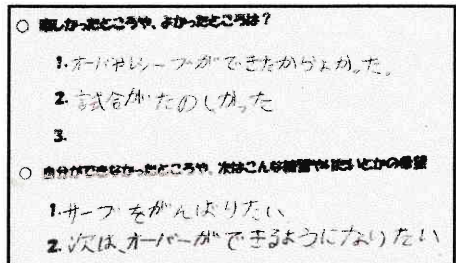 ○ 楽しかったところや、よかったところは？
1. オーバやレシーブができたからよかった。
2. 試合がたのしかった
3.
○ 自分ができなかったところや、次はこんな練習やりたいとかの希望
1. サーブをがんばりたい
2. 次は、オーバーができるようになりたい